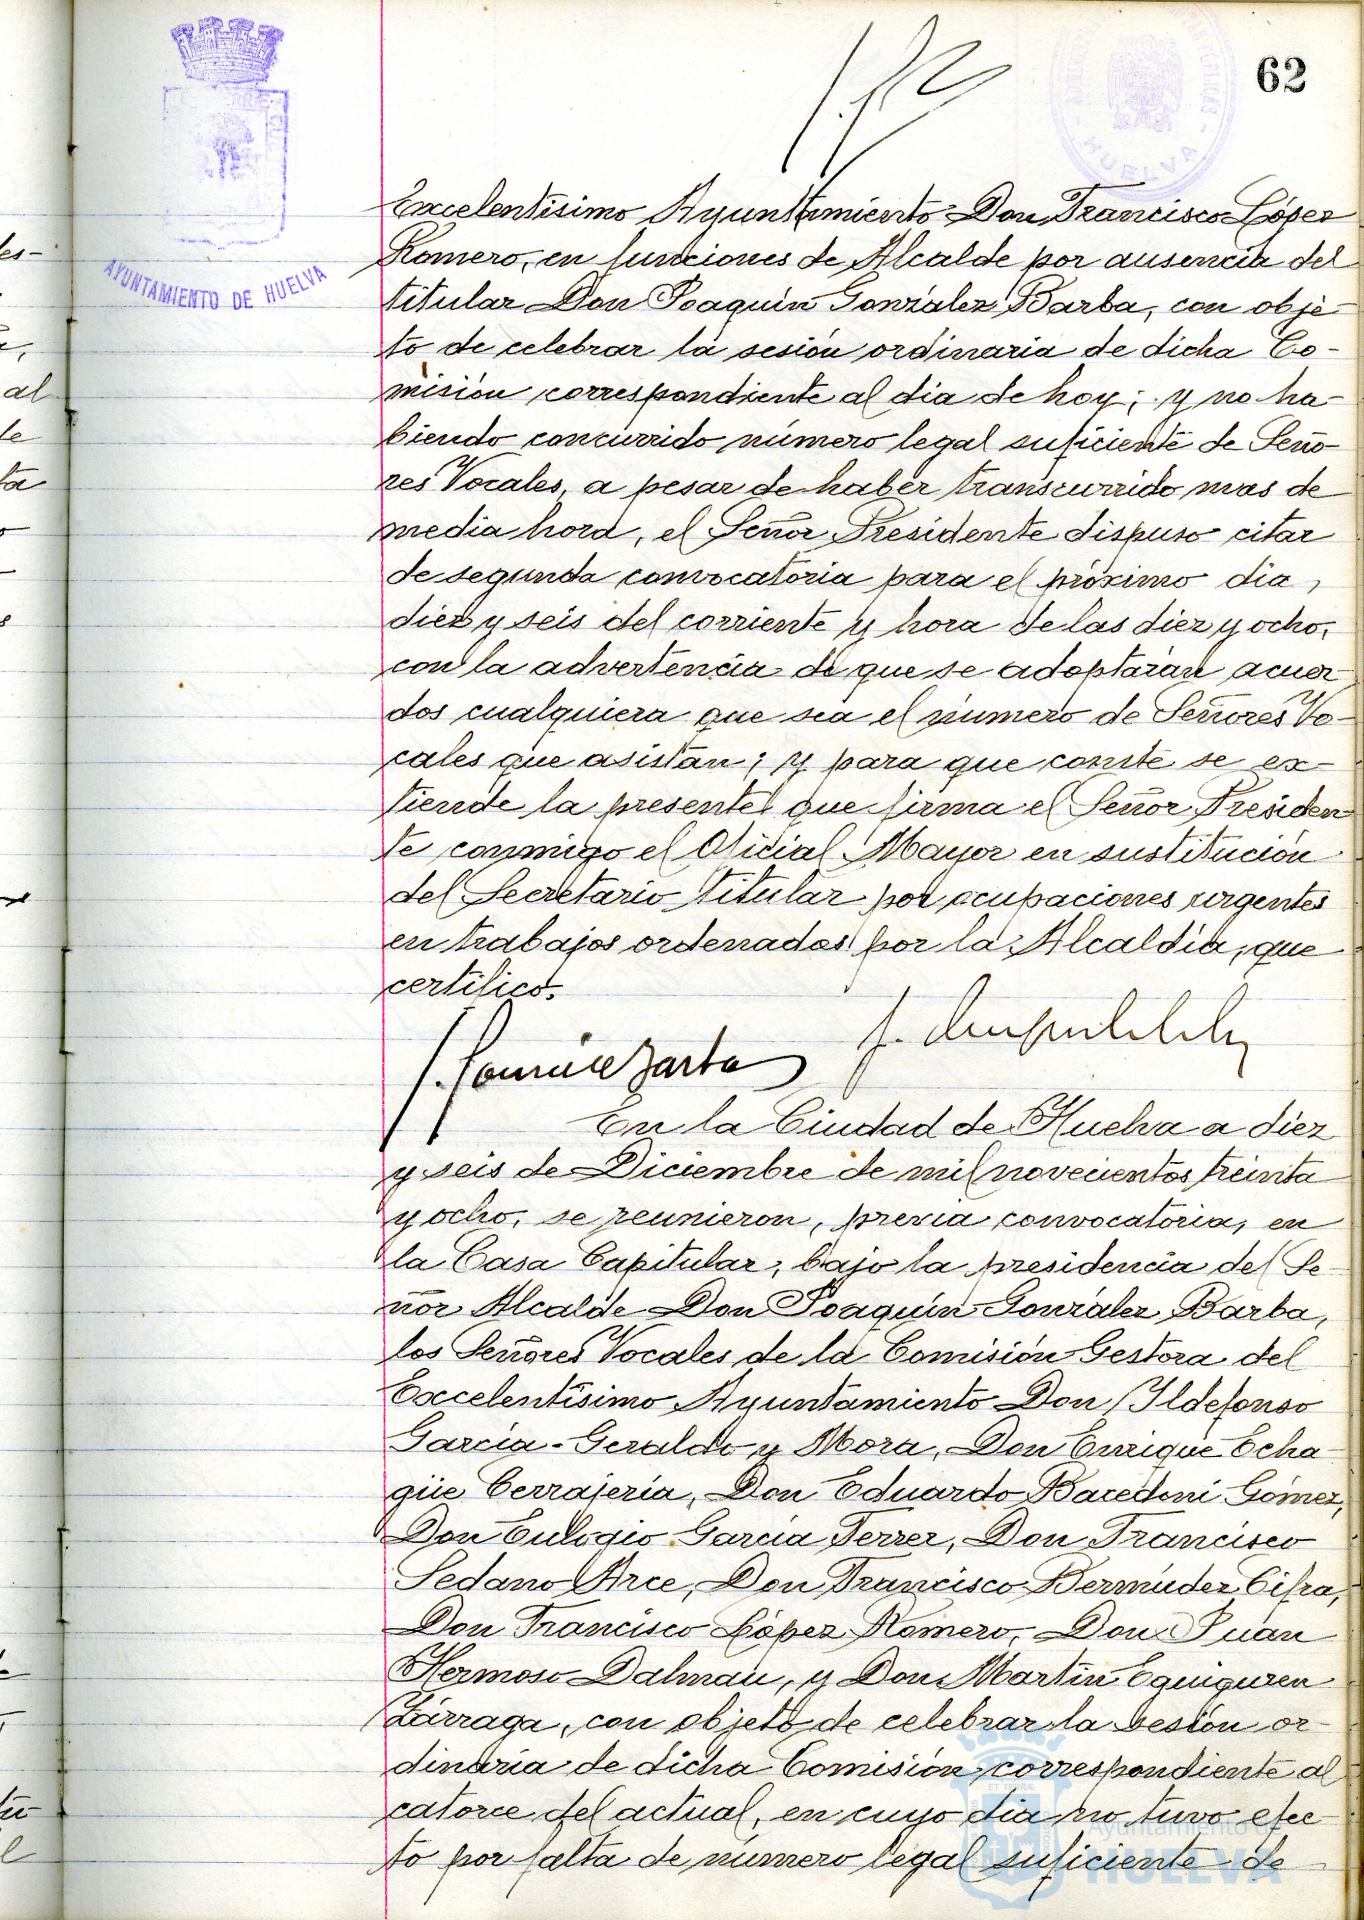 62
AYUNTAMIENTO DE HUELVA
HUELVA
Excelentísimo Ayuntamiento Don Francisco López
Romero, en funciones de Alcalde por ausencia del
titular Don Joaquín González Barba, con obje-
to de celebrar la sesión ordinaria de dicha Co-
misión correspondiente al día de hoy; y no ha-
biendo concurrido número legal suficiente de Seño-
res Vocales, a pesar de haber transcurrido mas de
media hora, el Señor Presidente dispuso citar
de segunda convocatoria para el próximo dia,
diez y seis del corriente y hora de las diez y ocho,
con la advertencia de que se adoptarán acuer-
dos cualquiera que sea el número de Señores Vo-
cales que asistan; y para que conste se ex-
tiende la presente que firma el Señor Presiden-
te conmigo el Oficial Mayor en sustitución
del Secretario titular por ocupaciones urgentes
en trabajos ordenados por la Alcaldía, que
certifico.
En la Ciudad de Huelva a diez
y seis de Diciembre de mil novecientos treinta
y ocho, se reunieron, previa convocatoria, en
la Casa Capitular, bajo la presidencia del Se-
ñor Alcalde Don Joaquín González Barba,
los Señores Vocales de la Comisión Gestora del
Excelentísimo Ayuntamiento Don Ildefonso
García-Geraldo y Mora, Don Enrique Echa-
güe Cerrajería, Don Eduardo Bacedoni Gómez,
Don Eulogio García Ferrer, Don Francisco
Sedano Arce, Don Francisco Bermúdez Cifra,
Don Francisco López Romero, Don Juan
Hermoso Dalmau, y Don Martín Eguiguren
Zárraga, con objeto de celebrar la sesión or-
dinaria de dicha Comisión correspondiente al
catorce del actual, en cuyo dia no tuvo efec-
to por falta de número legal suficiente de
Ayuntamiento de
HUELVA